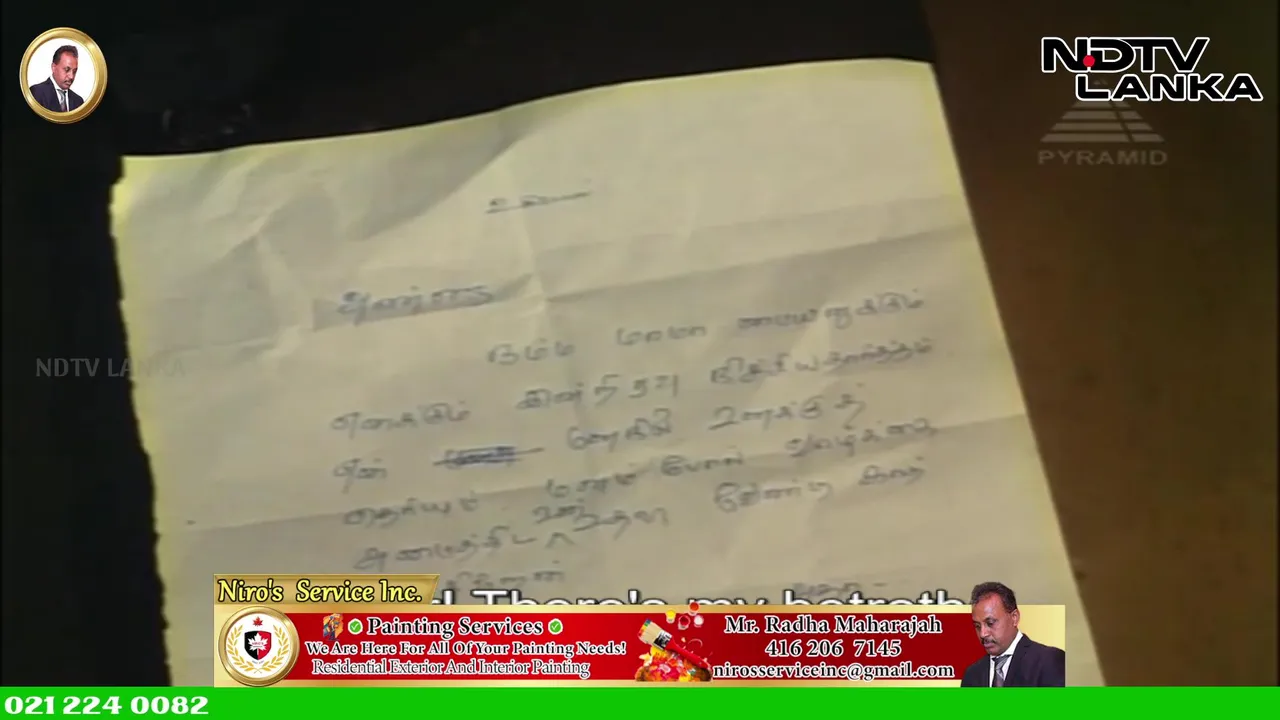 NDTV
LANKA
PYRAMID
NDTV LANKA
உ
நம்ம மாமா பையனுக்கும்
எனக்கும் இன்றிரவு நிச்சியதார்த்தம்
என் உனக்குத்
தெரியும் மனம் போல் வாழ்க்கை
அமைந்திட உன் உதவி வேண்டி காத்
There's my betroth
Niro's Service Inc.
Painting Services
We Are Here For All Of Your Painting Needs!
Residential Exterior And Interior Painting
Mr. Radha Maharajah
416 206 7145
nirosserviceinc@gmail.com
021 224 0082